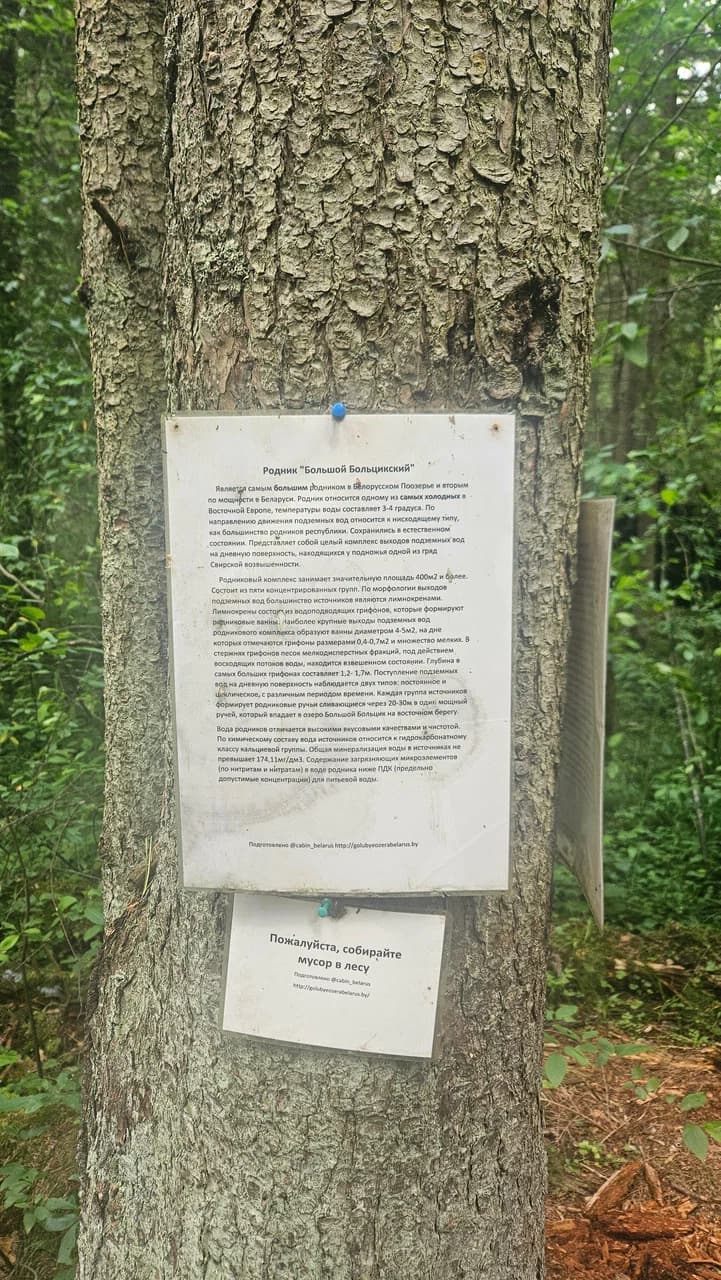 Родник "Большой Больцикский"
Является самым большим родником в Белорусском Поозерье и вторым
по мощности в Беларуси. Родник относится одному из самых холодных в
Восточной Европе, температуры воды составляет 3-4 градуса. По
направлению движения подземных вод относится к нисходящему типу,
как большинство родников республики. Сохранились в естественном
состоянии. Представляет собой целый комплекс выходов подземных вод
на дневную поверхность, находящихся у подножья одной из гряд
Свирской возвышенности.
Родниковый комплекс занимает значительную площадь 400м2 и более.
Состоит из пяти концентрированных групп. По морфологии выходов
подземных вод большинство источников являются лимнокренами.
Лимнокрены состоят из водоподводящих грифонов, которые формируют
родниковые ванны. Наиболее крупные выходы подземных вод
родникового комплекса образуют ванны диаметром 4-5м2, на дне
которых отмечаются грифоны размерами 0,4-0,7м2 и множество мелких. В
стержнях грифонов песок мелкодисперстных фракций, под действием
восходящих потоков воды, находится взвешенном состоянии. Глубина в
самых больших грифонах составляет 1,2- 1,7м. Поступление подземных
вод на дневную поверхность наблюдается двух типов: постоянное и
циклическое, с различным периодом времени. Каждая группа источников
формирует родниковые ручьи сливающиеся через 20-30м в один мощный
ручей, который впадает в озеро Большой Больцик на восточном берегу.
Вода родников отличается высокими вкусовыми качествами и чистотой.
По химическому составу вода источников относится к гидрокарбонатному
классу кальциевой группы. Общая минерализация воды в источниках не
превышает 174,11мг/дм3. Содержание загрязняющих микроэлементов
(по нитритам и нитратам) в воде родника ниже ПДК (предельно
допустимые концентрации) для питьевой воды.
Подготовлено @cabin_belarus http://golubyeozerabelarus.by
Пожалуйста, собирайте
мусор в лесу
Подготовлено @cabin_belarus
http://golubyeozerabelarus.by/